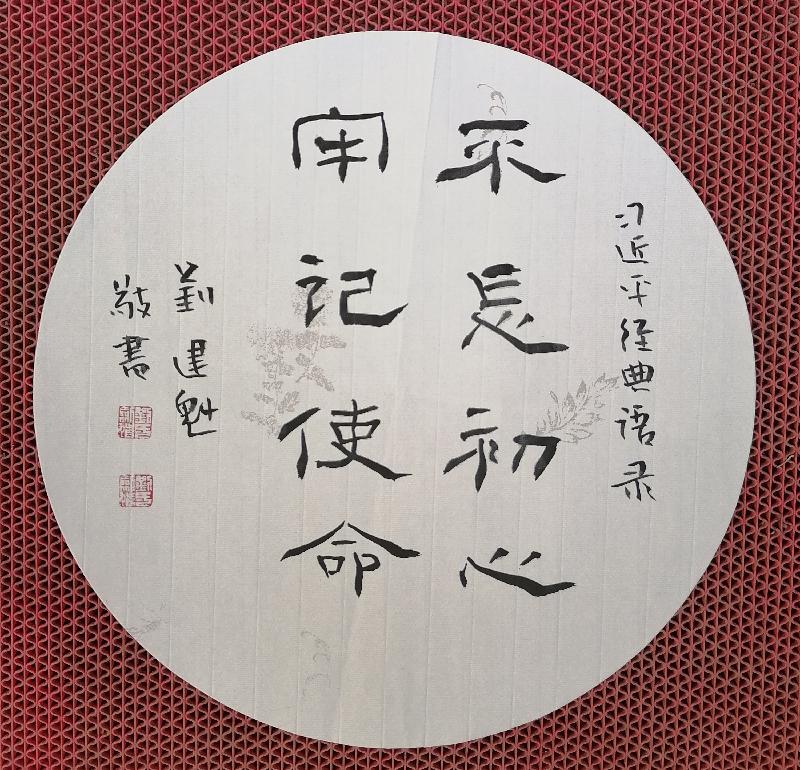 习近平经典语录
不忘初心
牢記使命
劉建魁
敬書